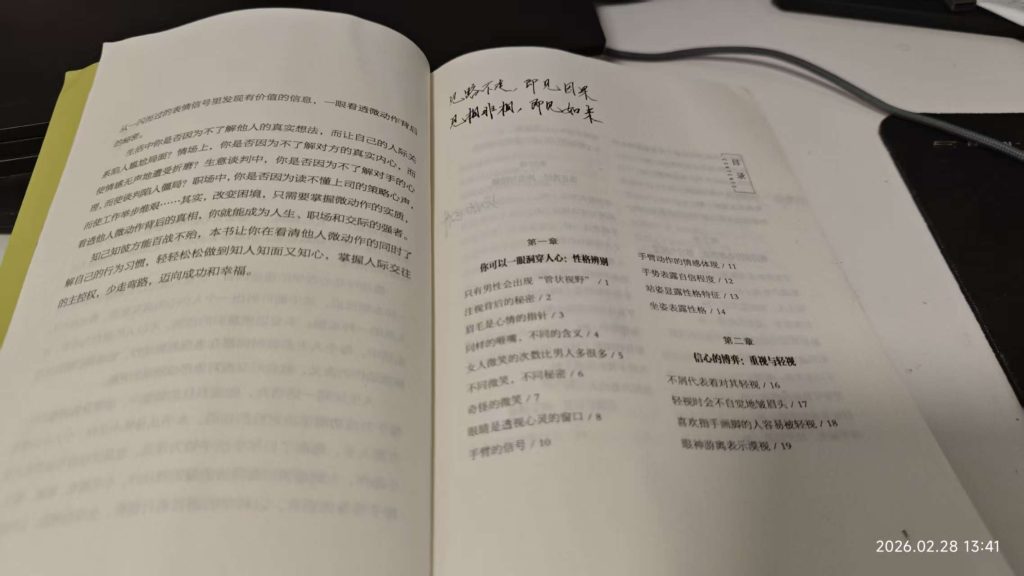 从一闪而过的表情信号里发现有价值的信息，一眼看透微动作背后
的秘密。
生活中你是否因为不了解他人的真实想法，而让自己的人际关
系陷入尴尬局面？情场上，你是否因为不了解对方的真实内心，而
使情感无声地遭受折磨？生意谈判中，你是否因为不了解对手的心
理，而使谈判陷入僵局？职场中，你是否因为读不懂上司的策略心声，
而使工作举步维艰……其实，改变困境，只需要掌握微动作的实质，
看透他人微动作背后的真相，你就能成为人生、职场和交际的强者。
知己知彼方能百战不殆，本书让你在看清他人微动作的同时了
解自己的行为习惯，轻轻松松做到知人知面又知心，掌握人际交往
的主控权，少走弯路，迈向成功和幸福。
见路不走，即见因果
见相非相，即见如来
目录
第一章
你可以一眼洞穿人心：性格辨别
只有男性会出现“管状视野” / 1
注视背后的秘密 / 2
眉毛是心情的指针 / 3
同样的噘嘴，不同的含义 / 4
女人微笑的次数比男人多很多 / 5
不同微笑，不同秘密 / 6
奇怪的微笑 / 7
眼睛是透视心灵的窗口 / 8
手臂的信号 / 10
手臂动作的情感体现 / 11
手势表露自信程度 / 12
站姿显露性格特征 / 13
坐姿表露性格 / 14
第二章
信心的博弈：重视与轻视
不屑代表着对其轻视 / 16
轻视时会不自觉地皱眉头 / 17
喜欢指手画脚的人容易被轻视 / 18
眼神游离表示漠视 / 19
2026.02.28 13:41